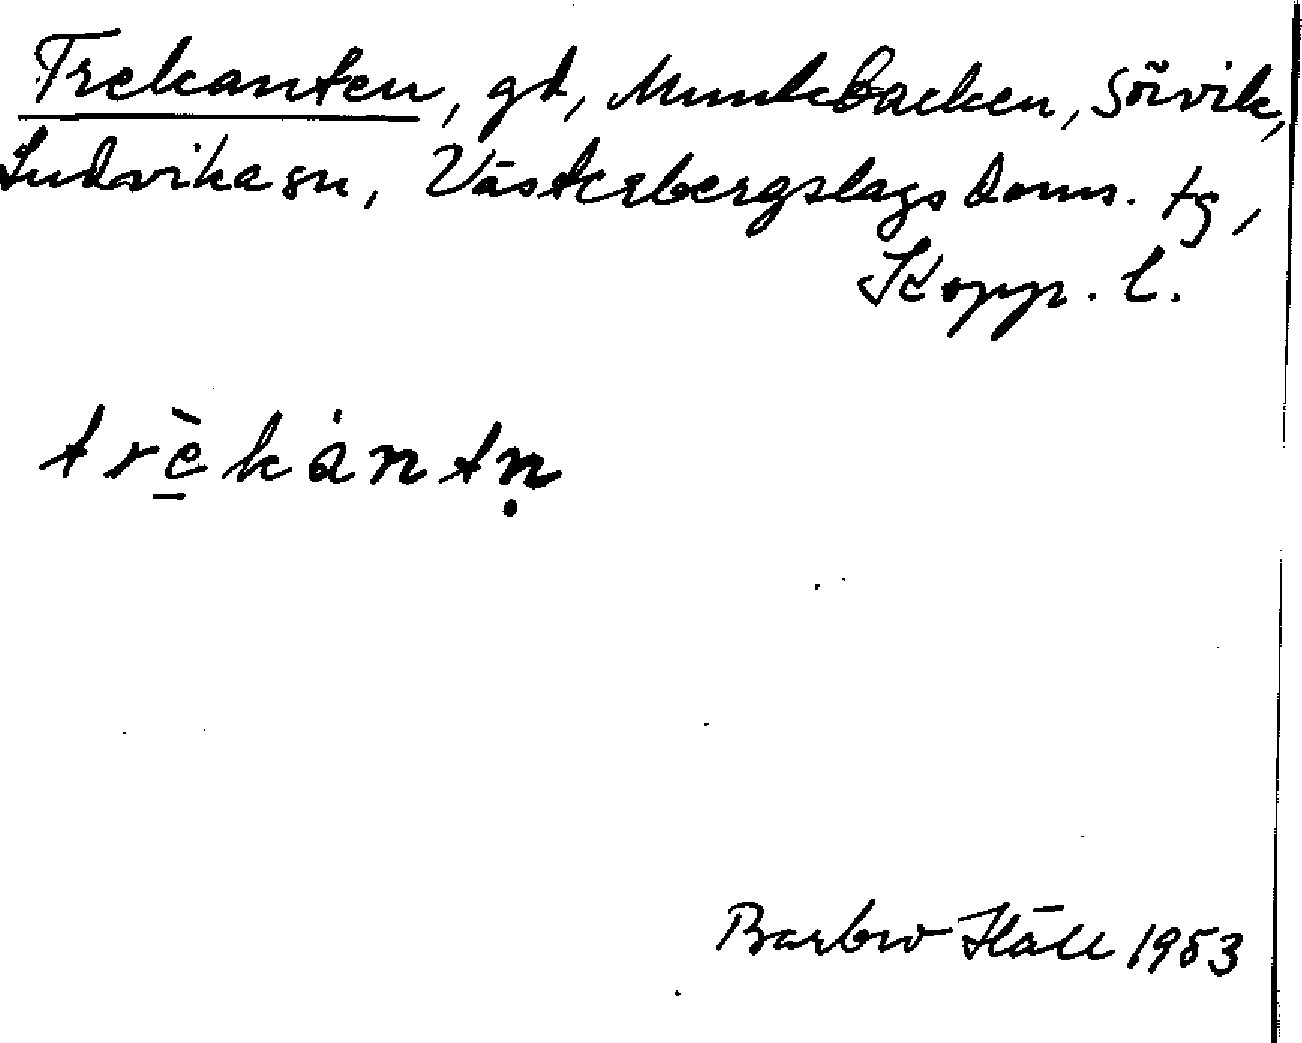 Trekanten, gd, Munkbacken, Sörvik,
Ludvika sn, Västerbergslags doms. tg,
Kopp. l.
trè̱kȧntṇ
Barbro Häll 1953